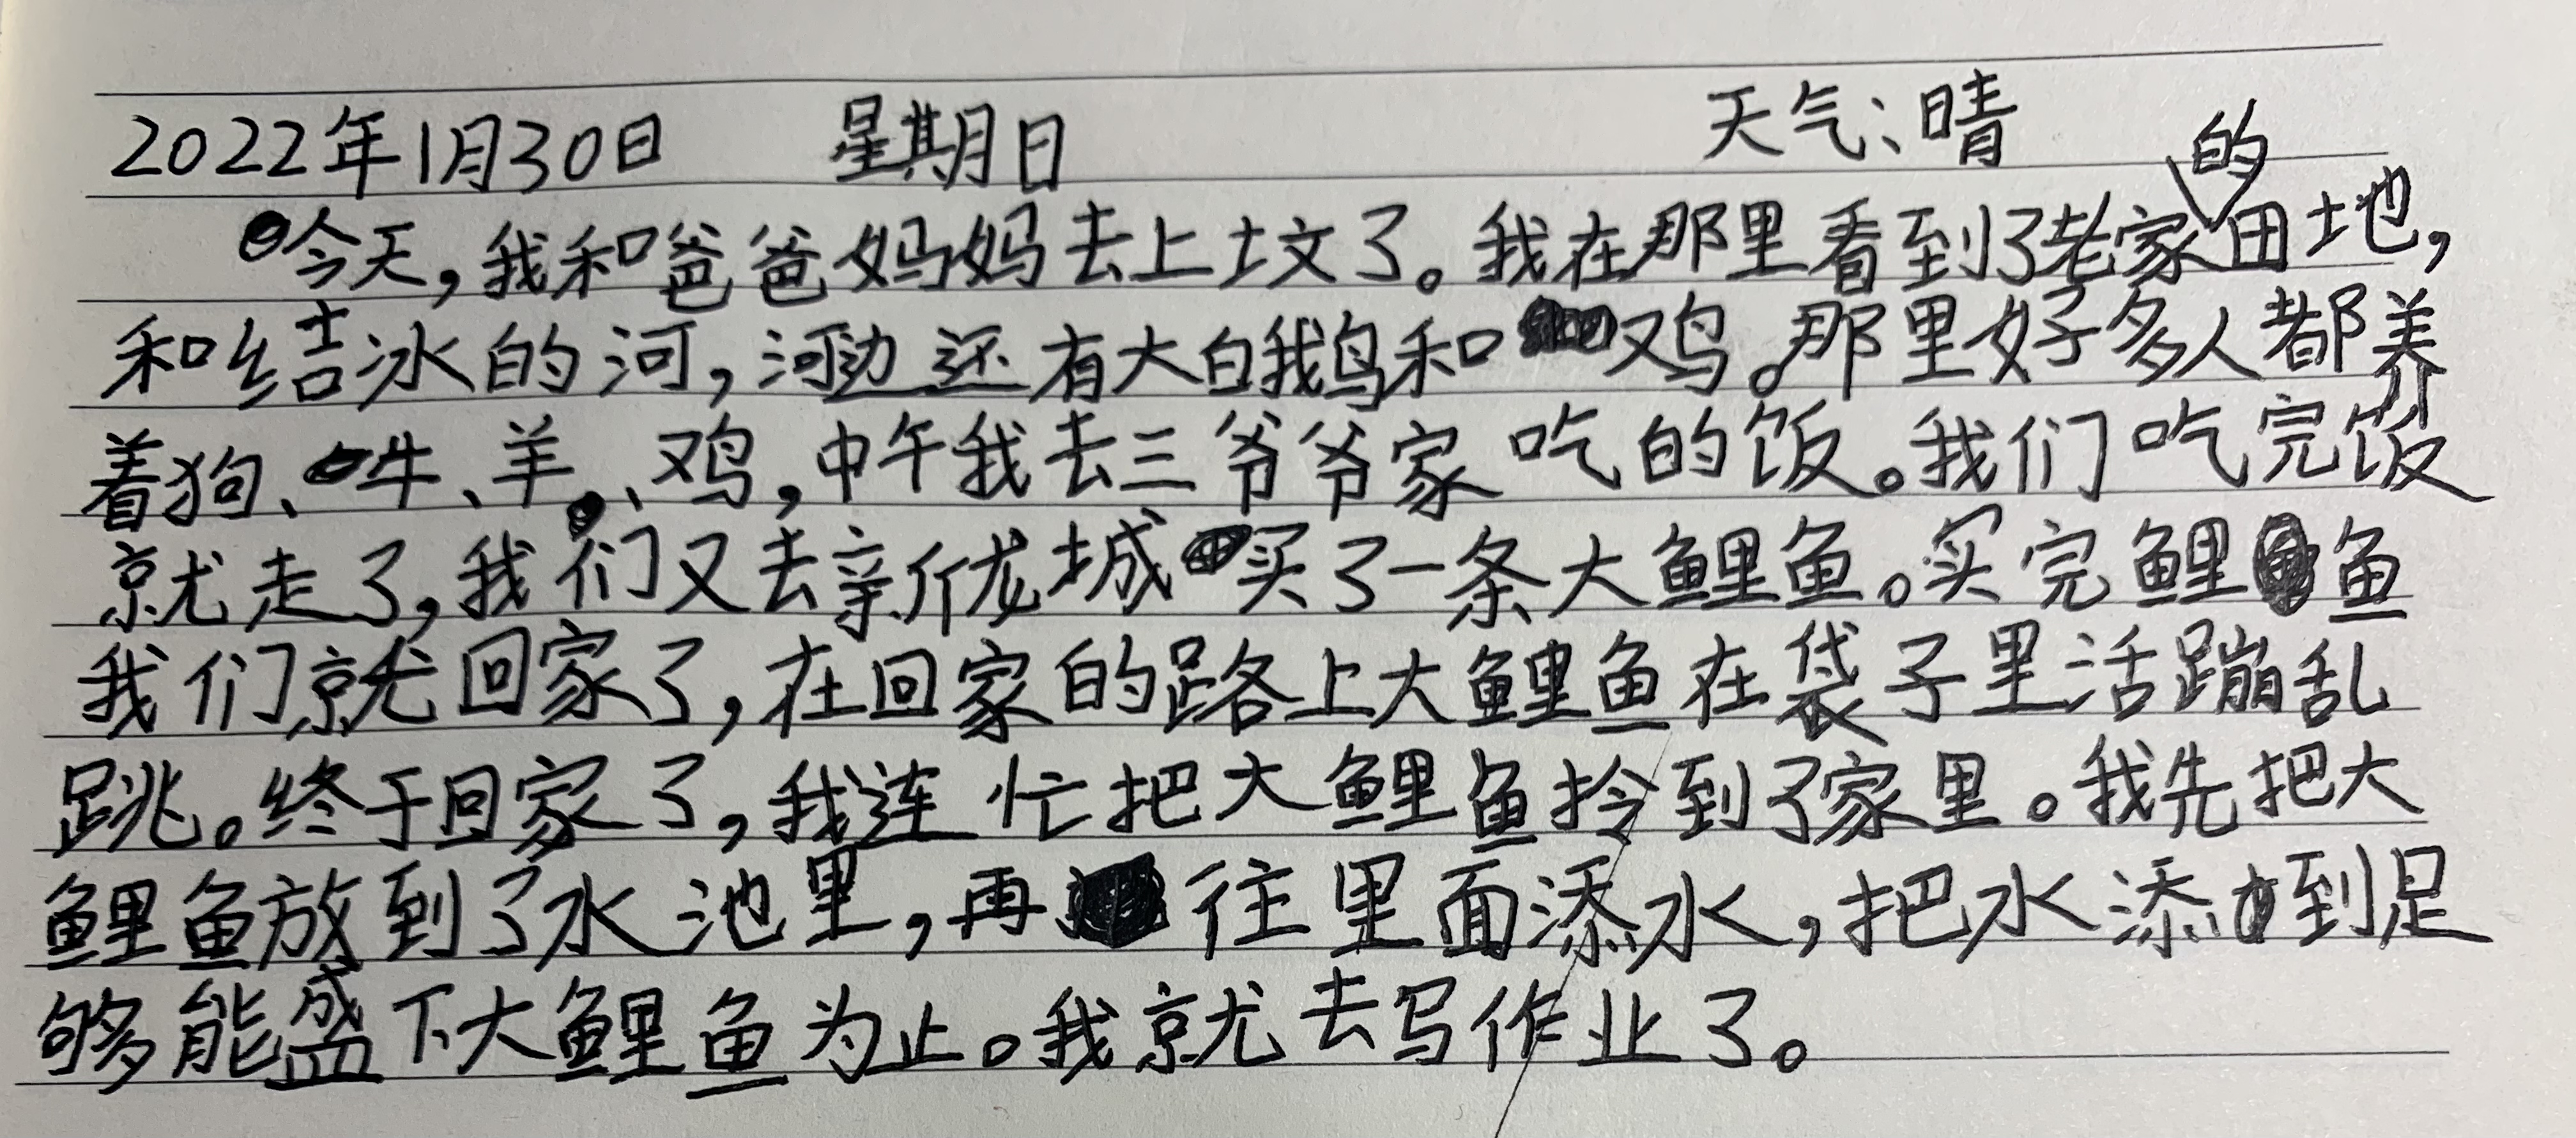 2022年1月30日 星期日 天气:晴
今天,我和爸爸妈妈去上坟了。我在那里看到了老家的田地,
和结冰的河,河边还有大白鹅和鸡。那里好多人都养
着狗、牛、羊、鸡,中午我去三爷爷家吃的饭。我们吃完饭
就走了,我们又去新龙城买了一条大鲤鱼。买完鲤鱼
我们就回家了,在回家的路上大鲤鱼在袋子里活蹦乱
跳。终于回家了,我连忙把大鲤鱼拎到了家里。我先把大
鲤鱼放到了水池里,再往里面添水,把水添到足
够能盛下大鲤鱼为止。我就去写作业了。